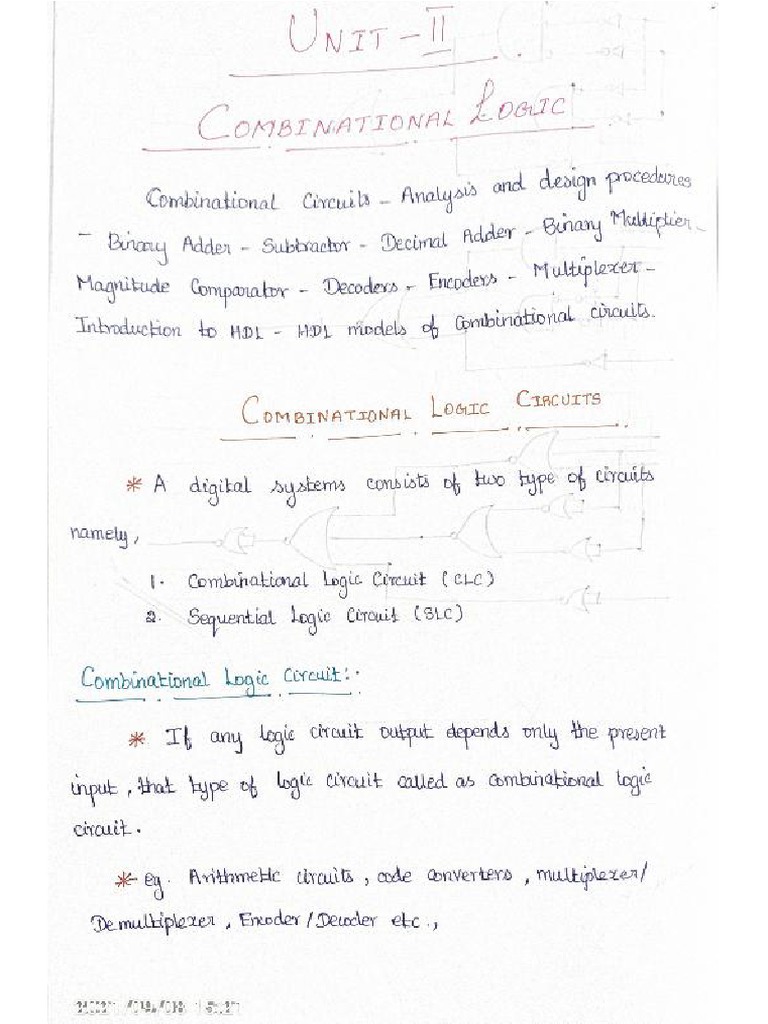 UNIT - II
COMBINATIONAL LOGIC
Combinational Circuits - Analysis and design procedures
- Binary Adder - Subtractor - Decimal Adder - Binary Multiplier -
Magnitude Comparator - Decoders - Encoders - Multiplexer -
Introduction to HDL - HDL models of Combinational circuits.
COMBINATIONAL LOGIC CIRCUITS
* A digital systems consists of two type of circuits
namely,
1. Combinational Logic Circuit (CLC)
2. Sequential Logic Circuit (SLC)
Combinational Logic Circuit:-
* If any logic circuit output depends only the present
input, that type of logic circuit called as combinational logic
circuit.
* eg. Arithmetic circuits, code converters, multiplexer/
Demultiplexer, Encoder/Decoder etc.,